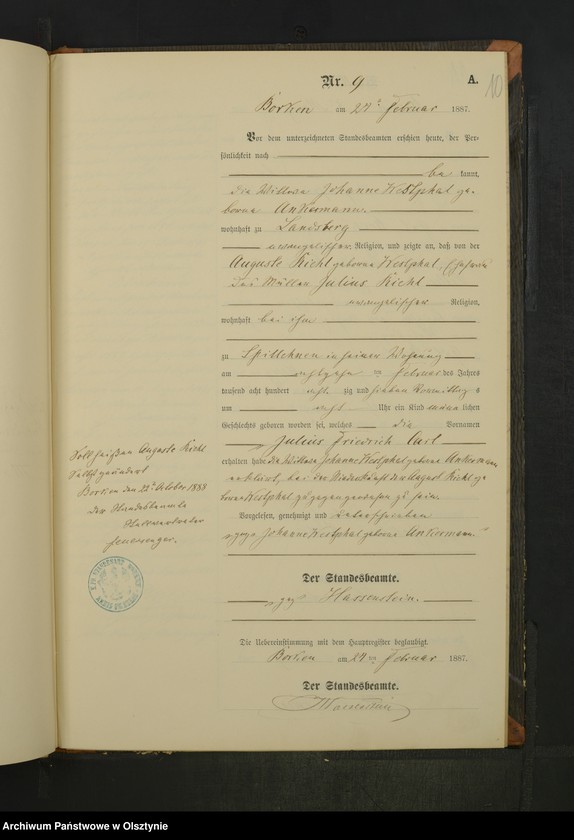 Nr. 9
A.
10
Borken am 24ten Februar 1887.
Vor dem unterzeichneten Standesbeamten erschien heute, der Per-
sönlichkeit nach
be kannt,
die Wittwe Johanne Westphal ge-
borne Ankermann
wohnhaft zu Landsberg
evangelischer Religion, und zeigte an, daß von der
Auguste Kichl geborne Westphal, Ehefrau
des Müller Julius Kichl
evangelischer Religion,
wohnhaft bei ihm
zu in seiner Wohnung
am achtzehnten Februar des Jahres
tausend acht hundert acht zig und sieben Vormittags
um acht Uhr ein Kind männlichen
Geschlechts geboren worden sei, welches die Vornamen
Julius Friedrich Carl
erhalten habe die Wittwe Johanne Westphal geborne Ankermann
erklärt, bei der Niederkunft der Kichl ge-
borne Westphal zugegen gewesen zu sein
Vorgelesen, genehmigt und unterschrieben
gez. Johanne Westphal geborne Ankermann
Der Standesbeamte.
gez. Hassenstein.
Die Uebereinstimmung mit dem Hauptregister beglaubigt.
Borken am 24ten Februar 1887.
Der Standesbeamte.
Hassenstein
Soll heißen Auguste Kichl
Borken den 22ten October 1888
Der Standesbeamte
Archiwum Państwowe w Olsztynie